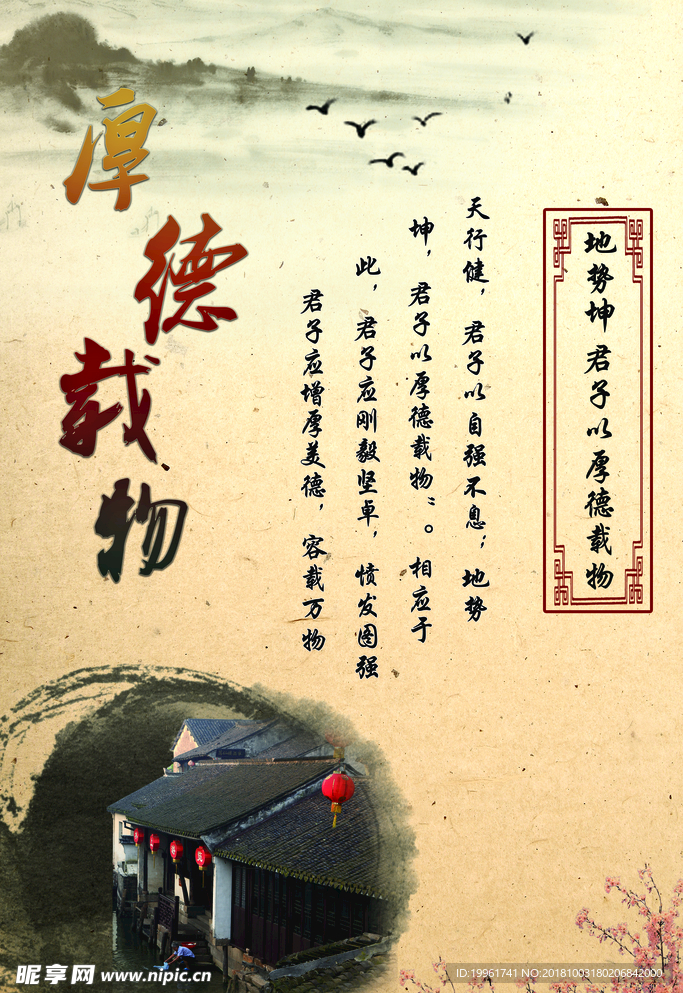 地势坤 君子以厚德载物
天行健，君子以自强不息；地势
坤，君子以厚德载物"。相应于
此，君子应刚毅坚卓，愤发图强
君子应增厚美德，容载万物
厚德载物
昵享网 www.nipic.cn
ID:19961741 NO:20181003180206842000